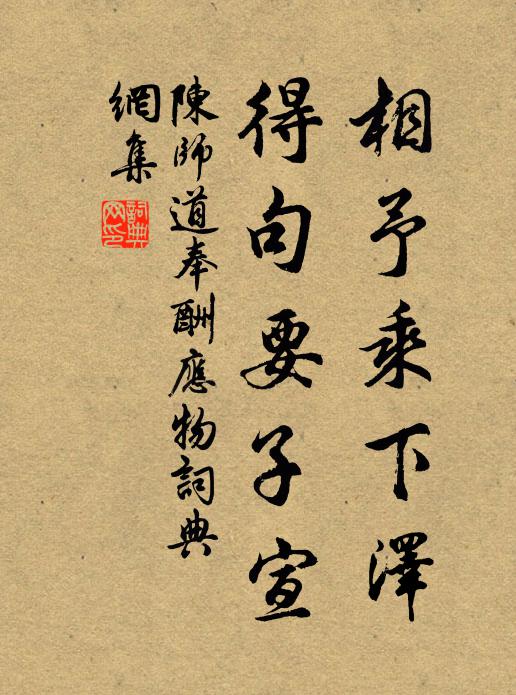 相予乘下澤
得句要子宣
陳師道奉酬應物詞典
網集
詞典
网印